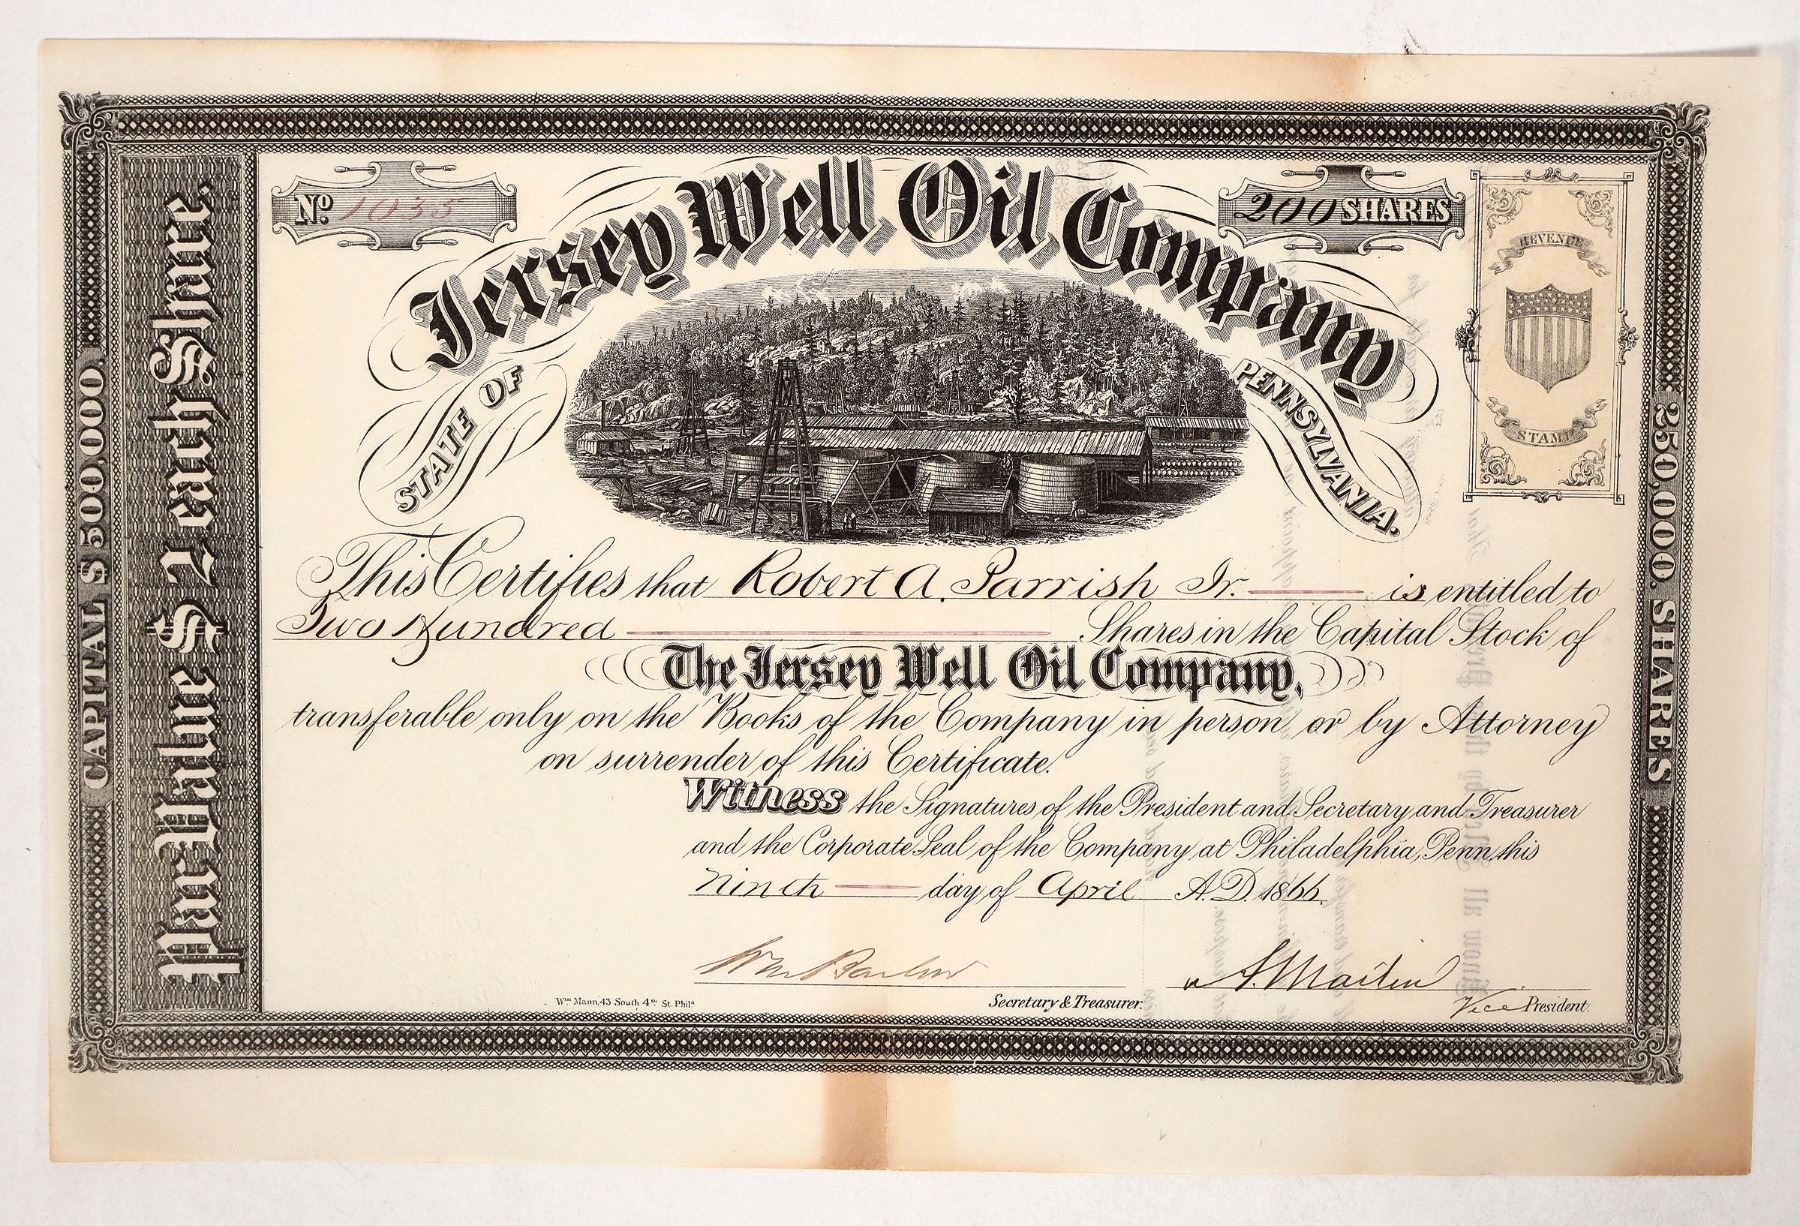 Nº 1035
Jersey Well Oil Company
200 SHARES
STATE OF PENNSYLVANIA.
REVENUE
STAMP
CAPITAL $500,000.
Par Value $2 each Share.
250,000. SHARES
This Certifies that Robert A. Parrish Jr. is entitled to
Two Hundred Shares in the Capital Stock of
The Jersey Well Oil Company,
transferable only on the Books of the Company in person or by Attorney
on surrender of this Certificate.
Witness the Signatures of the President and Secretary and Treasurer
and the Corporate Seal of the Company at Philadelphia, Penn, this
Ninth day of April A.D. 1866.
Wm Barlow
S. Martin
Wm Mann, 43 South 4th St. Phila
Secretary & Treasurer.
Vice President.